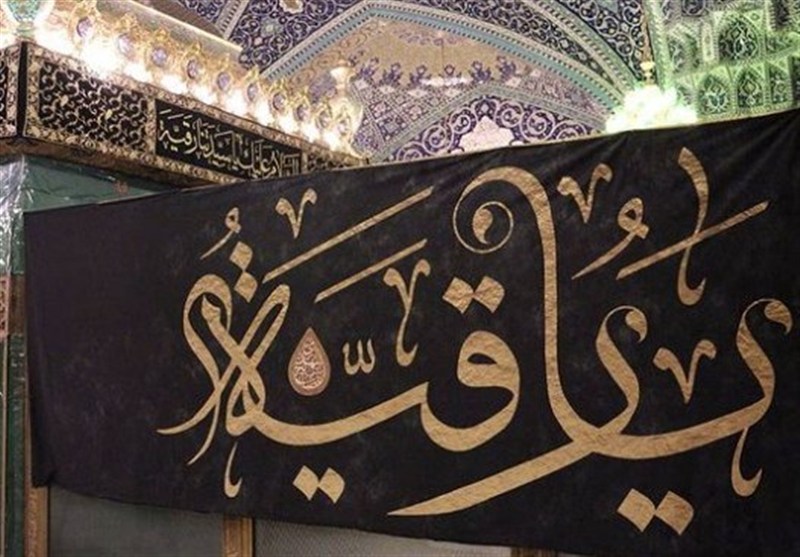 السلام علیک یا سیدتنا رقیة
یا رقیة